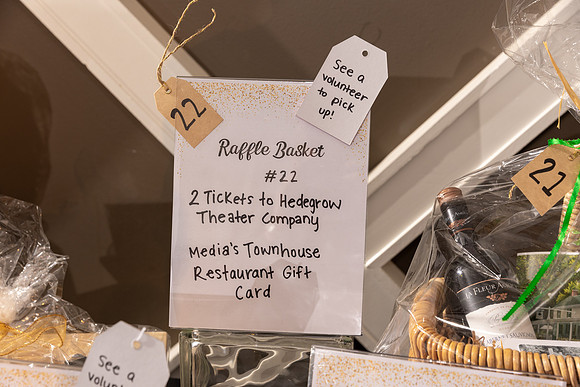 22
See a
volunteer
to pick
up!
Raffle Basket
#22
2 Tickets to Hedegrow
Theater Company
Media's Townhouse
Restaurant Gift
Card
21
LA FLEUR
See a